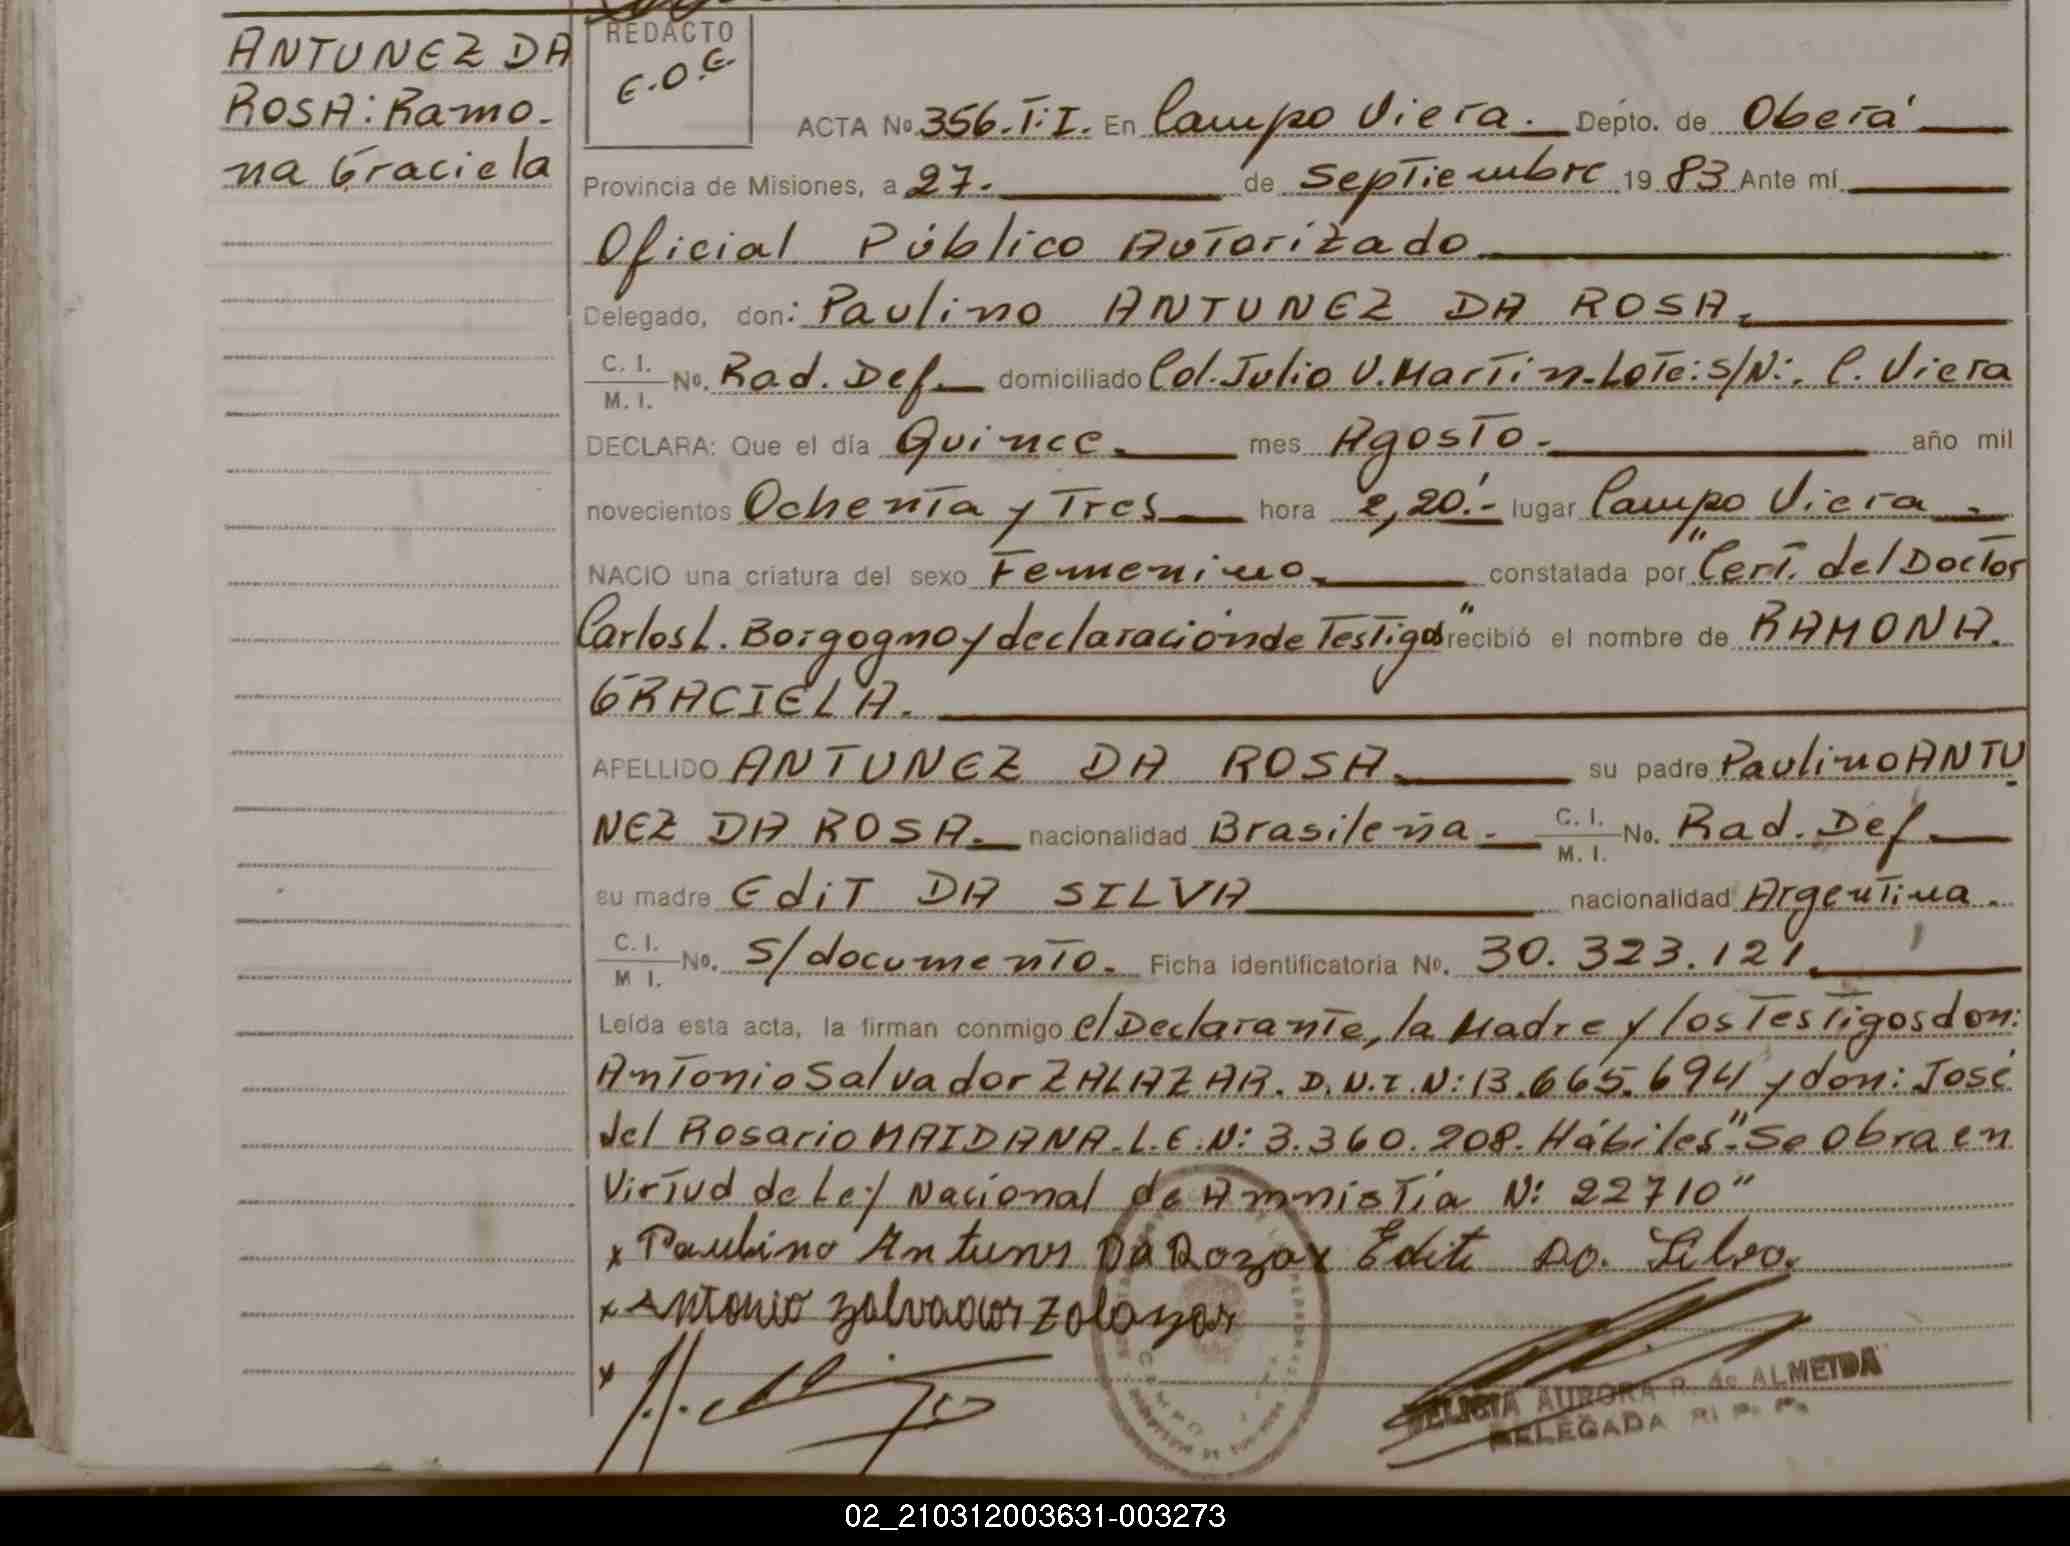 ANTUNEZ DA
ROSA: Ramo-
na Graciela
REDACTO
E.O.E.
ACTA No. 356.T:I. En Campo Viera. Depto. de Oberá
Provincia de Misiones, a 27. de Septiembre 1983 Ante mí
Oficial Público Autorizado
Delegado, don: Paulino ANTUNEZ DA ROSA.
C. I. / M. I. No. Rad. Def. domiciliado Col. Julio U. Martin-Lote: S/N:. C. Viera
DECLARA: Que el día Quince. mes Agosto. año mil
novecientos Ochenta y Tres hora 2,20'.- lugar Campo Viera.
NACIO una criatura del sexo Femenino. constatada por "Cert. del Doctor
Carlos L. Borgogno y declaración de Testigos" recibió el nombre de RAMONA.
GRACIELA.
APELLIDO ANTUNEZ DA ROSA. su padre Paulino ANTU
NEZ DA ROSA. nacionalidad Brasileña. C. I. / M. I. No. Rad. Def.
su madre Edit DA SILVA nacionalidad Argentina.
C. I. / M I. No. S/documento. Ficha identificatoria No. 30.323.121.
Leída esta acta, la firman conmigo el Declarante, la Madre y los Testigos don:
Antonio Salvador ZALAZAR. D.N.I.N: 13.665.694 y don: José
del Rosario MAIDANA. L.E.N: 3.360.208. Hábiles". Se obra en
Virtud de Ley Nacional de Amnistía N: 22710"
x Paulino Antunes Da Roza x Edite Da. Silva.
x Antonio zalvador zalazar
x
DELICIA AURORA R. de ALMEIDA
DELEGADA R. P. P.
02_210312003631-003273